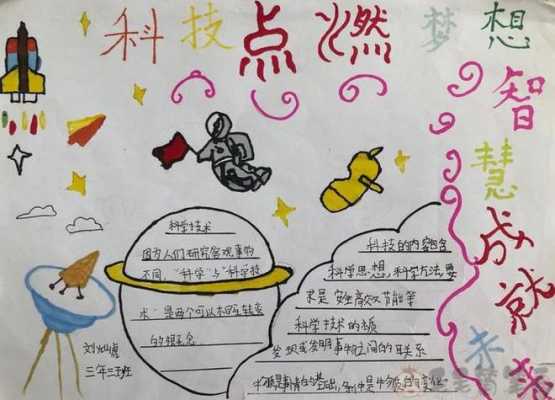 科技点燃梦想
智慧成就未来
科学技术
因为人们研究客观事物
不同，“科学”与“科学技
术”是两个可以相互转变
的概念
科技的内容包含
科学思想 科学方法 要
求是 安全高效节能等
科学技术的
发现或发明事物之间的
刘
三年三班